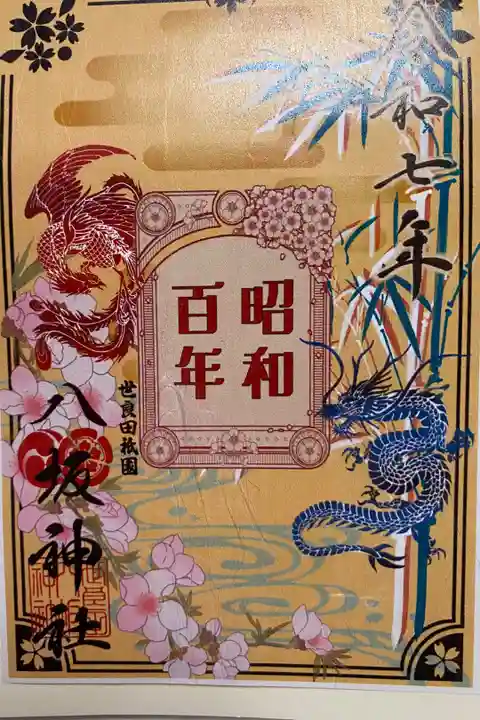 令和七年
昭和
百年
世良田祇園
八坂神社